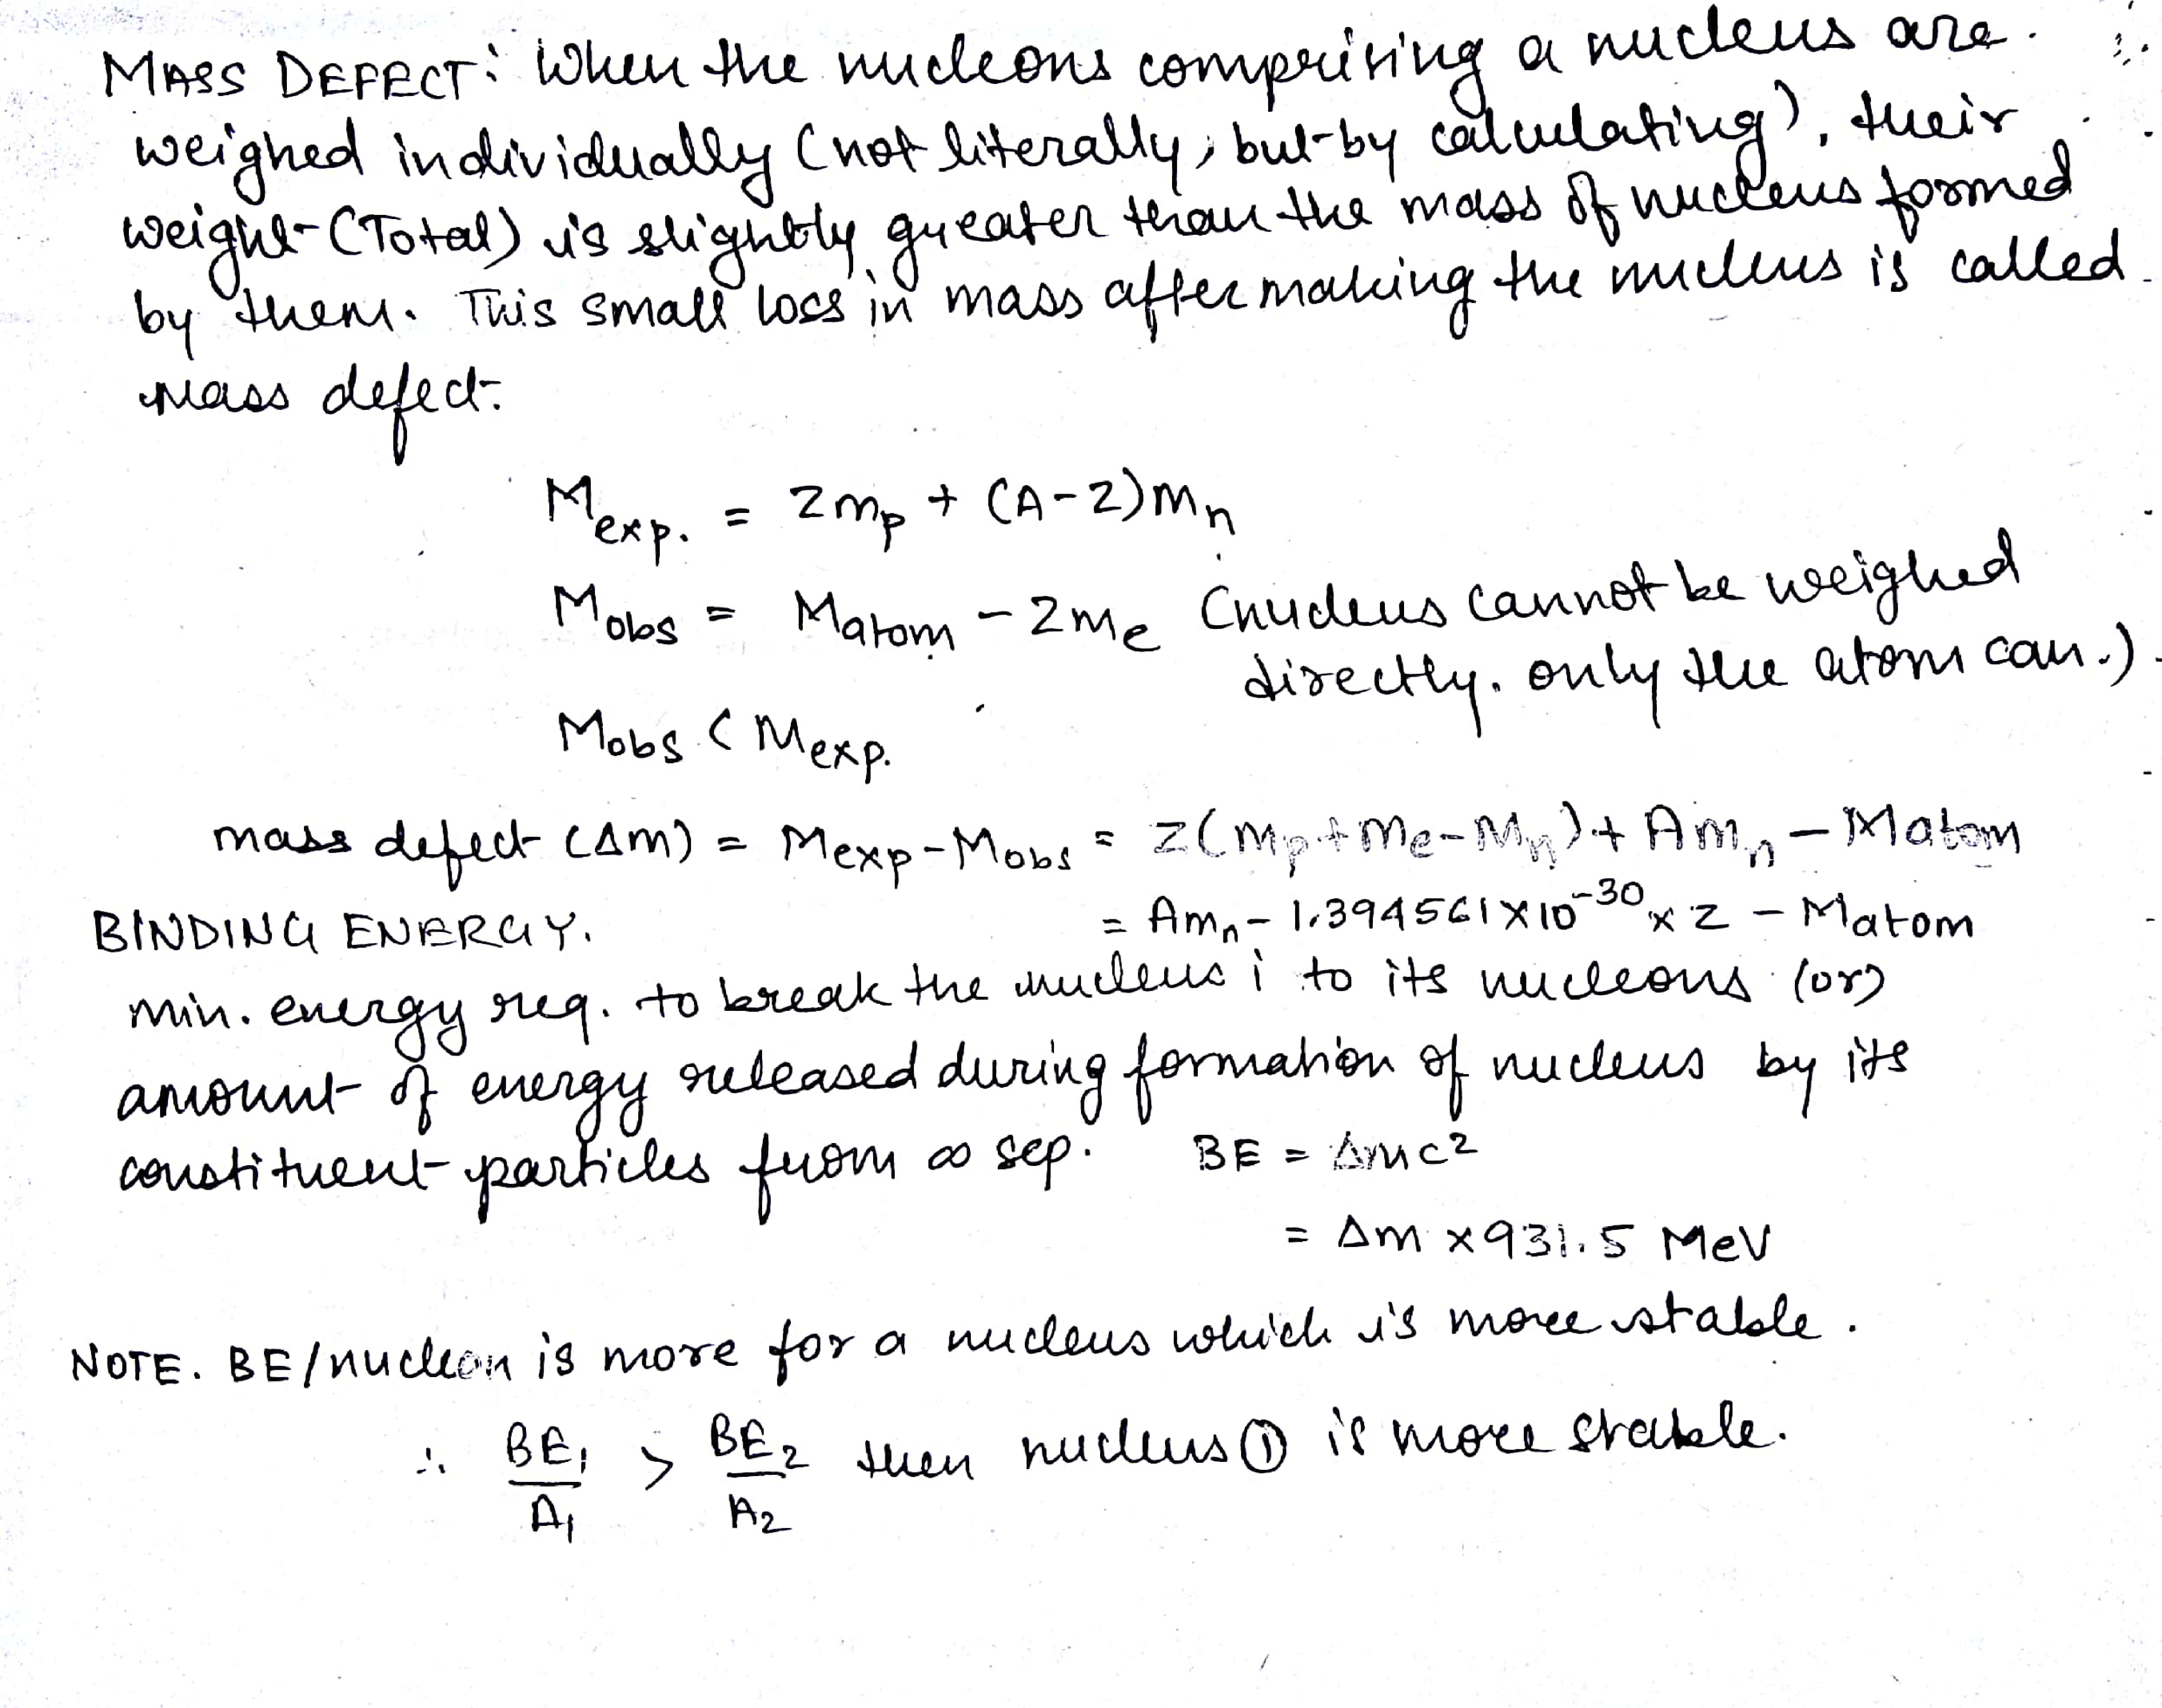 MASS DEFECT: When the nucleons comprising a nucleus are
weighed individually (not literally, but by calculating), their
weight (Total) is slightly greater than the mass of nucleus formed
by them. This small loss in mass after making the nucleus is called
mass defect.
Mexp. = Zmp + (A-Z)mn
Mobs = Matom - Zme (nucleus cannot be weighed
directly. only the atom can.)
Mobs < Mexp.
mass defect (Δm) = Mexp - Mobs = Z(mp+me-mn) + Amn - Matom
= Amn - 1.394561×10⁻³⁰ × Z - Matom
BINDING ENERGY.
min. energy req. to break the nucleus i to its nucleons (or)
amount of energy released during formation of nucleus by its
constituent particles from ∞ sep. BE = Δmc²
= Δm × 931.5 MeV
NOTE. BE/nucleon is more for a nucleus which is more stable.
∴ BE₁/A₁ > BE₂/A₂ then nucleus ① is more stable.